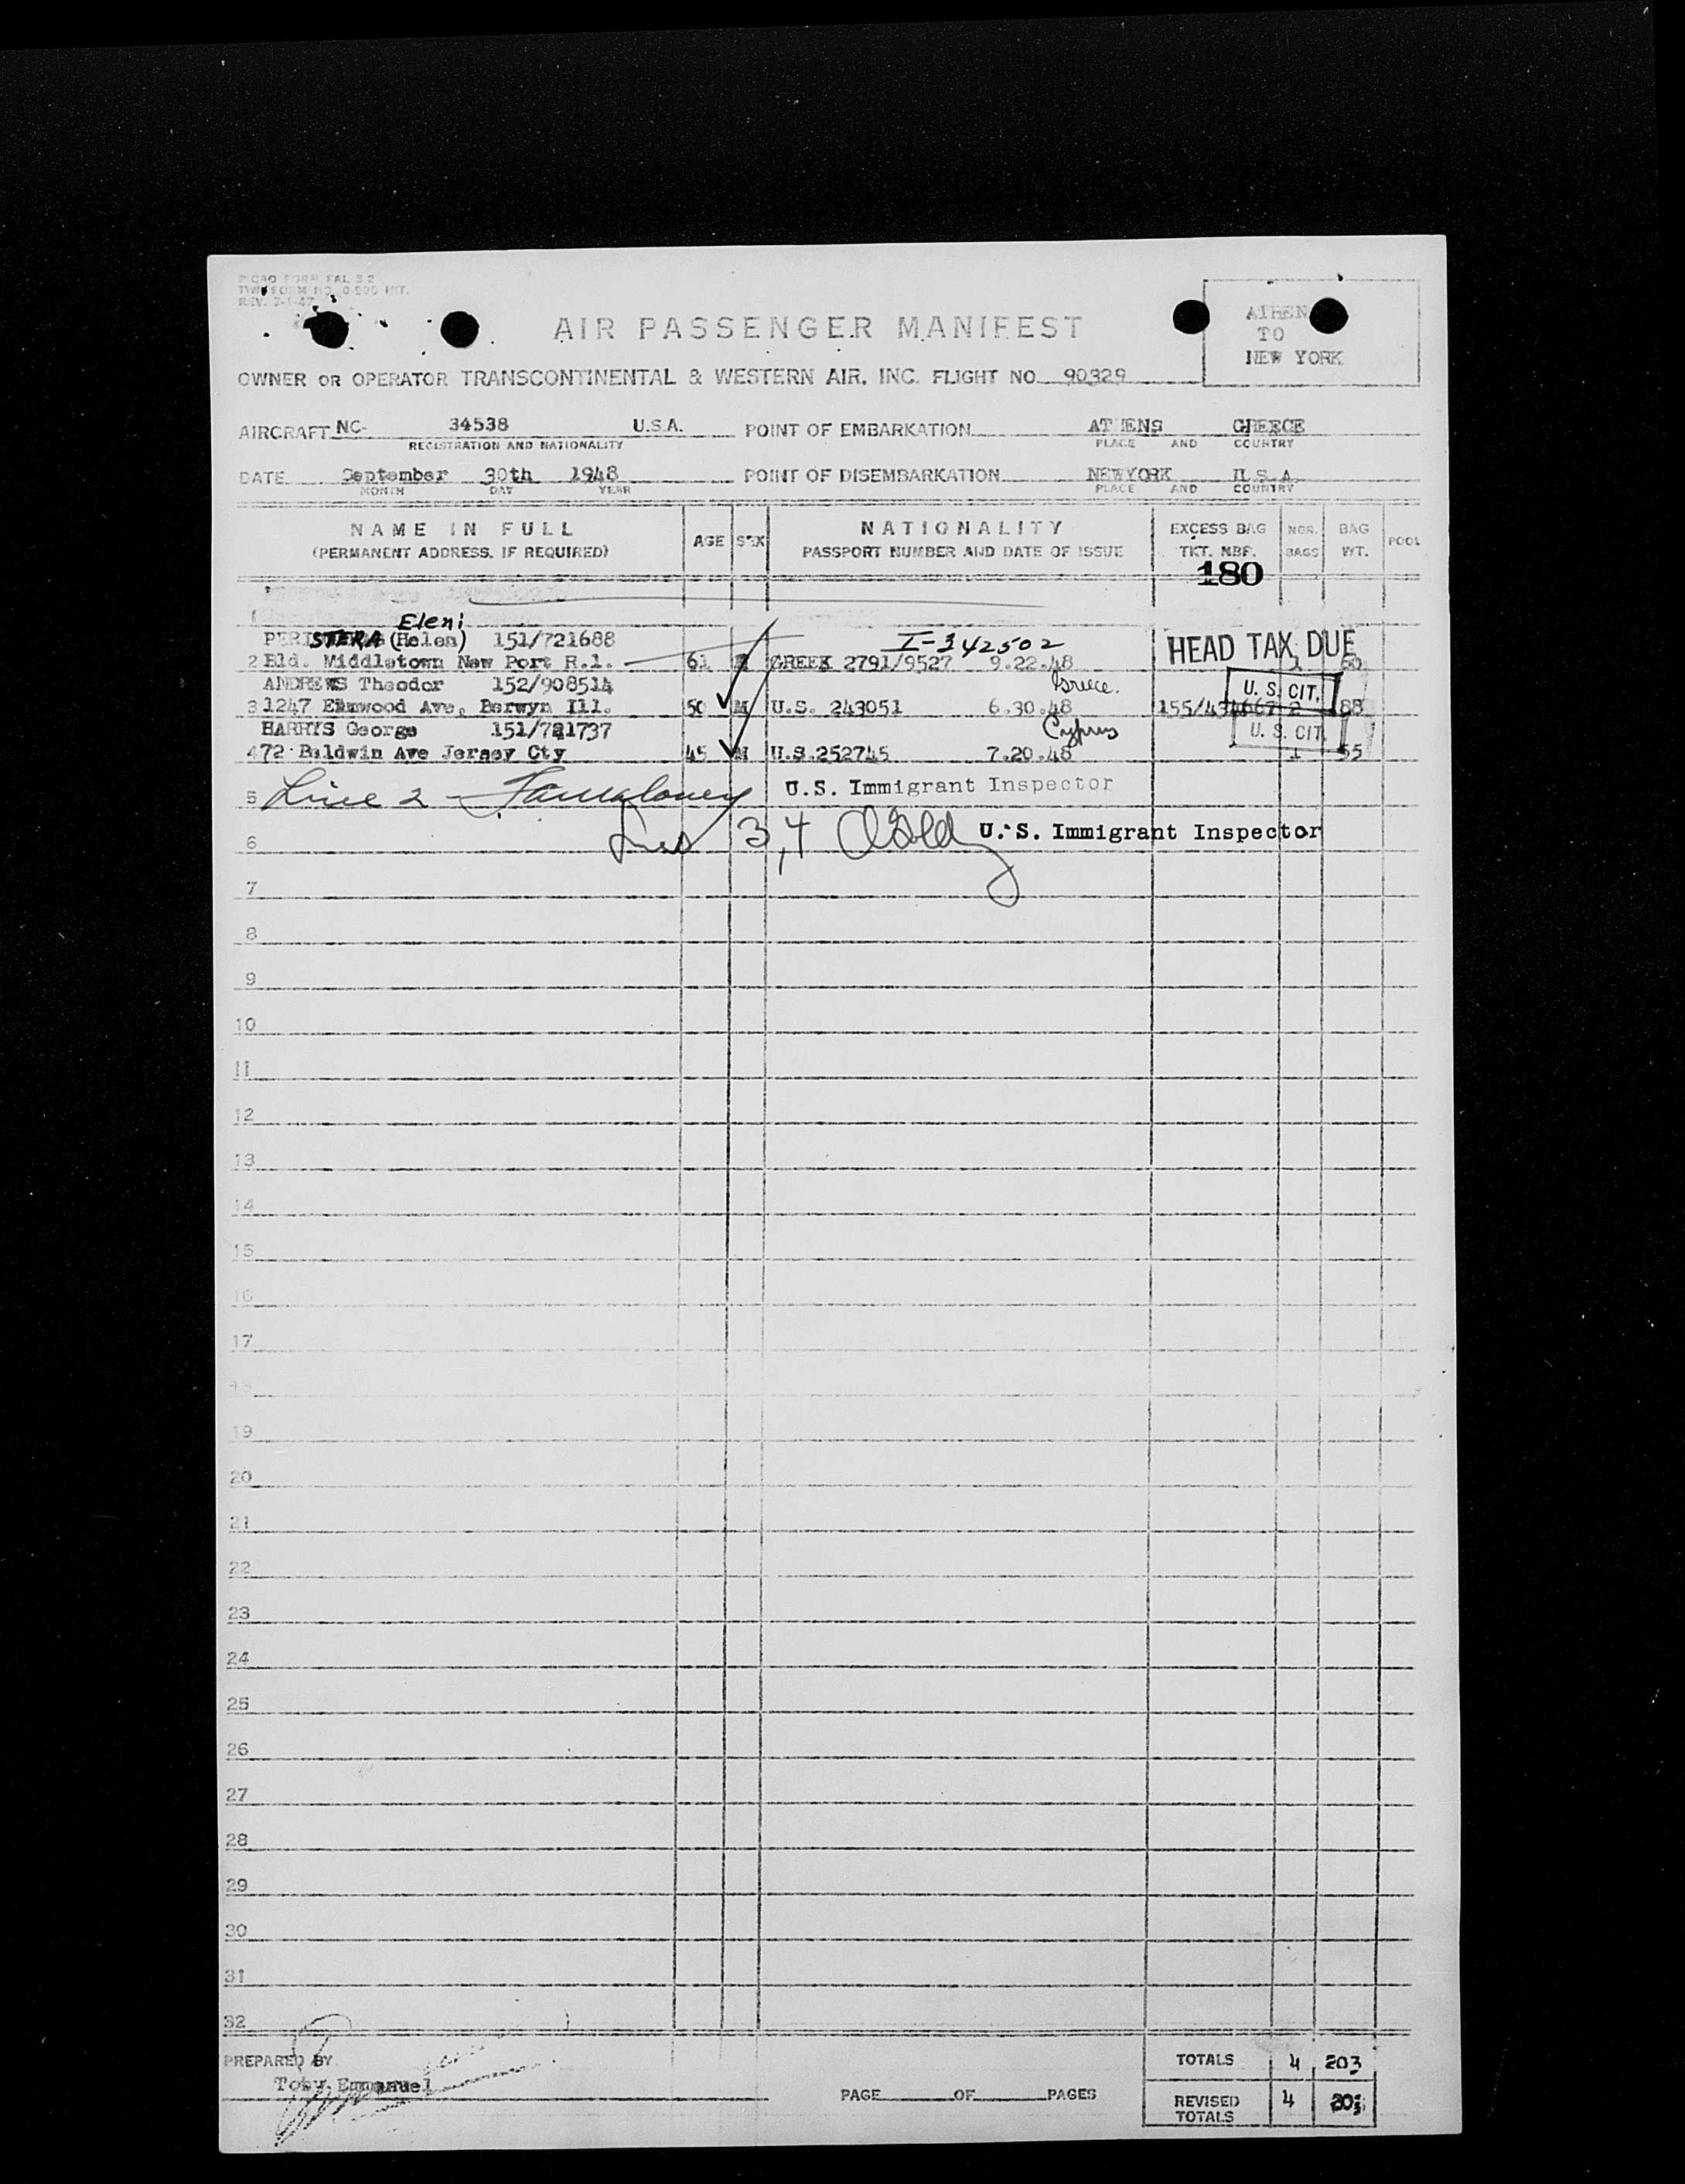 PICAO FORM FAL 3.2
TWA FORM NO. 0-500 INT.
REV. 7-1-47
ATHEN
TO
NEW YORK
AIR PASSENGER MANIFEST
OWNER OR OPERATOR TRANSCONTINENTAL & WESTERN AIR, INC. FLIGHT NO. 90329
AIRCRAFT NC- 34538 U.S.A. POINT OF EMBARKATION ATHENS GREECE
REGISTRATION AND NATIONALITY PLACE AND COUNTRY
DATE September 30th 1948 POINT OF DISEMBARKATION NEWYORK U.S.A.
MONTH DAY YEAR PLACE AND COUNTRY
NAME IN FULL AGE SEX NATIONALITY EXCESS BAG NOR. BAG POOL
(PERMANENT ADDRESS, IF REQUIRED) PASSPORT NUMBER AND DATE OF ISSUE TKT. NBR. BAGS WT.
180
1
Eleni
PERISTERA (Helen) 151/721688 I-342502 HEAD TAX DUE
2 Bld. Middletown New Port R.I. 61 GREEK 2791/9527 9.22.48 1 60
ANDREWS Theodor 152/908514 Greece. U.S. CIT.
3 1247 Elmwood Ave, Berwyn Ill. 50 M U.S. 243051 6.30.48 155/434667 2 88
HARRYS George 151/721737 Cyprus U.S. CIT.
4 72 Baldwin Ave Jersey Cty 45 M U.S.252745 7.20.48 1 55
5 Line 2 - U.S. Immigrant Inspector
6 Lines 3,4 U.S. Immigrant Inspector
7
8
9
10
11
12
13
14
15
16
17
18
19
20
21
22
23
24
25
26
27
28
29
30
31
32
PREPARED BY TOTALS 4 203
Toby Emmanuel PAGE OF PAGES REVISED 4 203
TOTALS